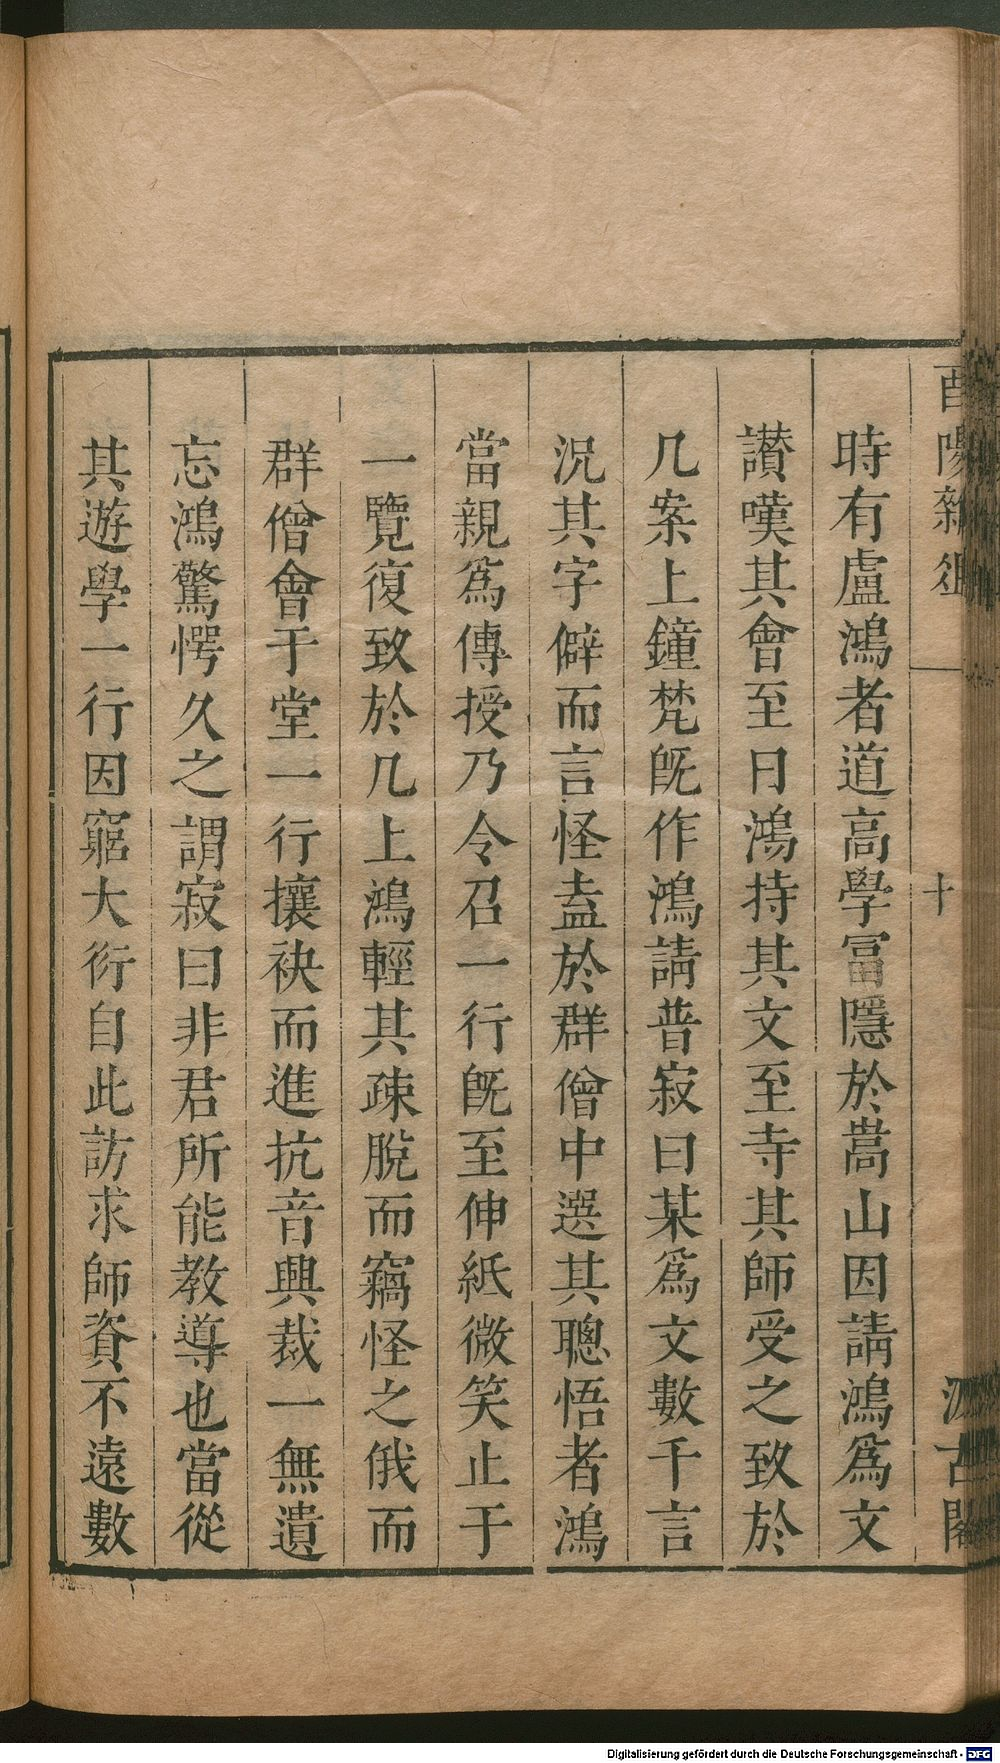 酉陽雜俎
十
汲古閣
時有盧鴻者道高學冨隱於嵩山因請鴻爲文
讃嘆其會至日鴻持其文至寺其師受之致於
几案上鐘梵旣作鴻請普寂曰某爲文數千言
況其字僻而言怪盍於群僧中選其聰悟者鴻
當親爲傳授乃令召一行旣至伸紙微笑止于
一覽復致於几上鴻輕其疎脫而竊怪之俄而
群僧會于堂一行攘袂而進抗音興裁一無遺
忘鴻驚愕久之謂寂曰非君所能教導也當從
其遊學一行因窮大衍自此訪求師資不遠數
Digitalisierung gefördert durch die Deutsche Forschungsgemeinschaft - DFG